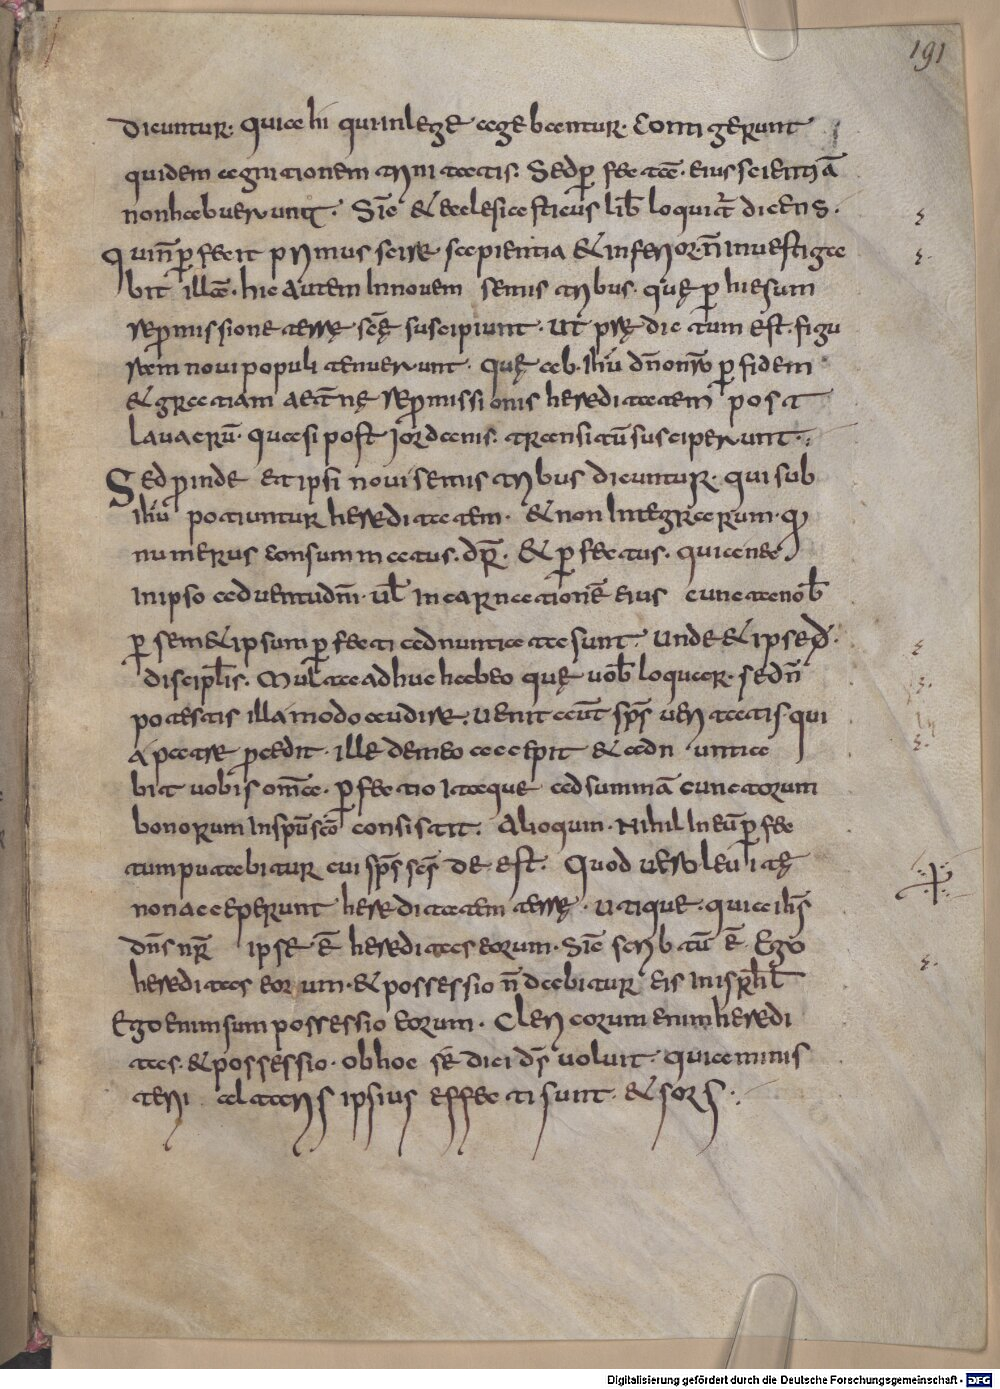 191
dicuntur. quia hi qui in lege agebantur. Contigerunt
quidem agnitionem trinitatis. Sed ꝑfectāe eius scientiā
non habuerunt. Sic̄ & ecclesiasticus lib̄ loquit̄ dicens.
Qui nō ꝑfecit primus scire sapientia & inferior n̄ inuestiga
bit illāe. hic autem In nouem semis tribus. quę ꝑ hiesum
repromissione terrę scę̄ suscipiunt. Ut prędictum est. figu
ram noui populi tenuerunt. quę ab. ihū dn̄o nr̄o ꝑ fidem
& gratiam aet̄nę repromissionis hereditatem post
lauacrū. quasi post Jordanis. transitū susceperunt.
Sed proinde et ipsi noui semis tribus dicuntur. qui sub
ihū potiuntur hereditatem. & non Integrarum. qd
numerus consummatus. dr̄. & ꝑfectus. quia nec
In ipso aduentu dn̄i. ul̄ Incarnationē eius cuncta nob̄
ꝑ sem&ipsum ꝑfecti adnuntiata sunt. Unde & ipse d.
discipl̄is. Multa adhuc habeo quę uob̄ loquar. sed n̄
potestis illa modo audire. Uenit aut̄ sp̄s ueritatis. qui
a patre p̄cedit. ille de meo accipit & adnuntia
bit uobis om̄ia. ꝑfectio Itaque ad summā cunctorum
bonorum In spū scō consistit. Alioquin. Nihil In eū ꝑfec
tum putabitur cui sp̄s scs̄ deest. Quod uero leuitę
non acceperunt hereditatem terrę. utique. quia ih̄s
dn̄s nr̄ ipse ē hereditas eorum. Sic̄ scribtū ē. Ego
hereditas eorum. & possessio n̄ dabitur eis In isrl̄
Ego enim sum possessio eorum. Clericorum enim heredi
tas. & possessio. ob hoc sē dici ds̄ uoluit. quia minis
teri alatens ipsius effecti sunt. & sors.
Digitalisierung gefördert durch die Deutsche Forschungsgemeinschaft - DFG